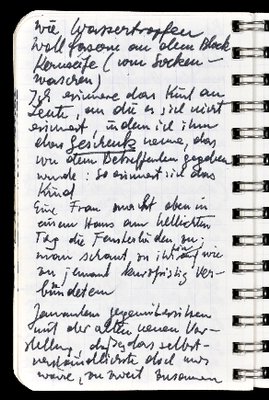 wie Wassertropfen
Wollfasern an dem Block
Kernseife (vom Socken-
waschen)
Ich erinnere das Kind an
Leute, an die es sich nicht
erinnert, indem ich ihm
das Geschenk nenne, das
von dem Betreffenden gegeben
wurde: so erinnert sich das
Kind
Eine Frau macht oben in
einem Haus am hellichten
Tag die Fensterläden zu;
man schaut zu ihr auf wie
zu jemand kurzfristig Ver-
bündetem
Jemandem gegenübersitzen
mit der alten neuen Vor-
stellung, daß das selbst-
verständlichste doch nur
wäre, zu zweit zusammen